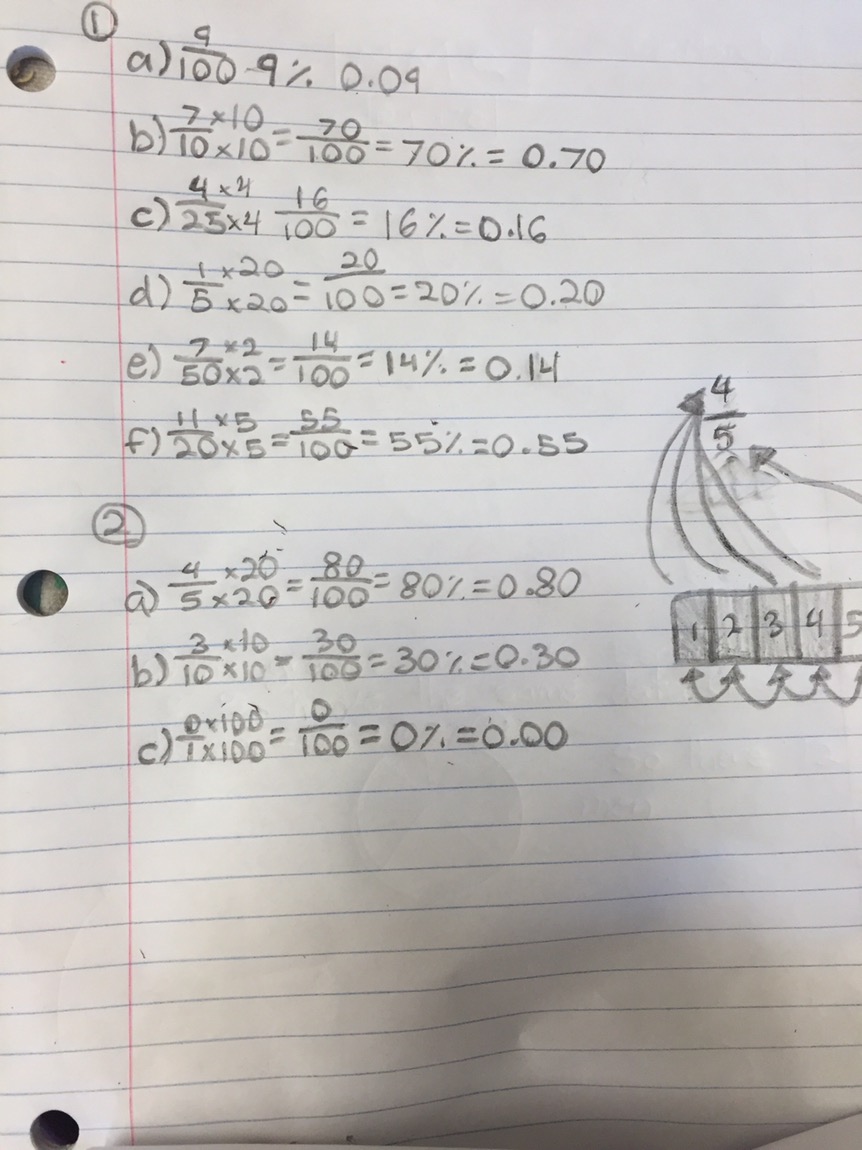 ①
a) 9/100 9% 0.09
b) 7×10/10×10 = 70/100 = 70% = 0.70
c) 4×4/25×4 16/100 = 16% = 0.16
d) 1×20/5×20 = 20/100 = 20% = 0.20
e) 7×2/50×2 = 14/100 = 14% = 0.14
f) 11×5/20×5 = 55/100 = 55% = 0.55
4/5
②
a) 4×20/5×20 = 80/100 = 80% = 0.80
1 2 3 4 5
b) 3×10/10×10 = 30/100 = 30% = 0.30
c) 0×100/1×100 = 0/100 = 0% = 0.00